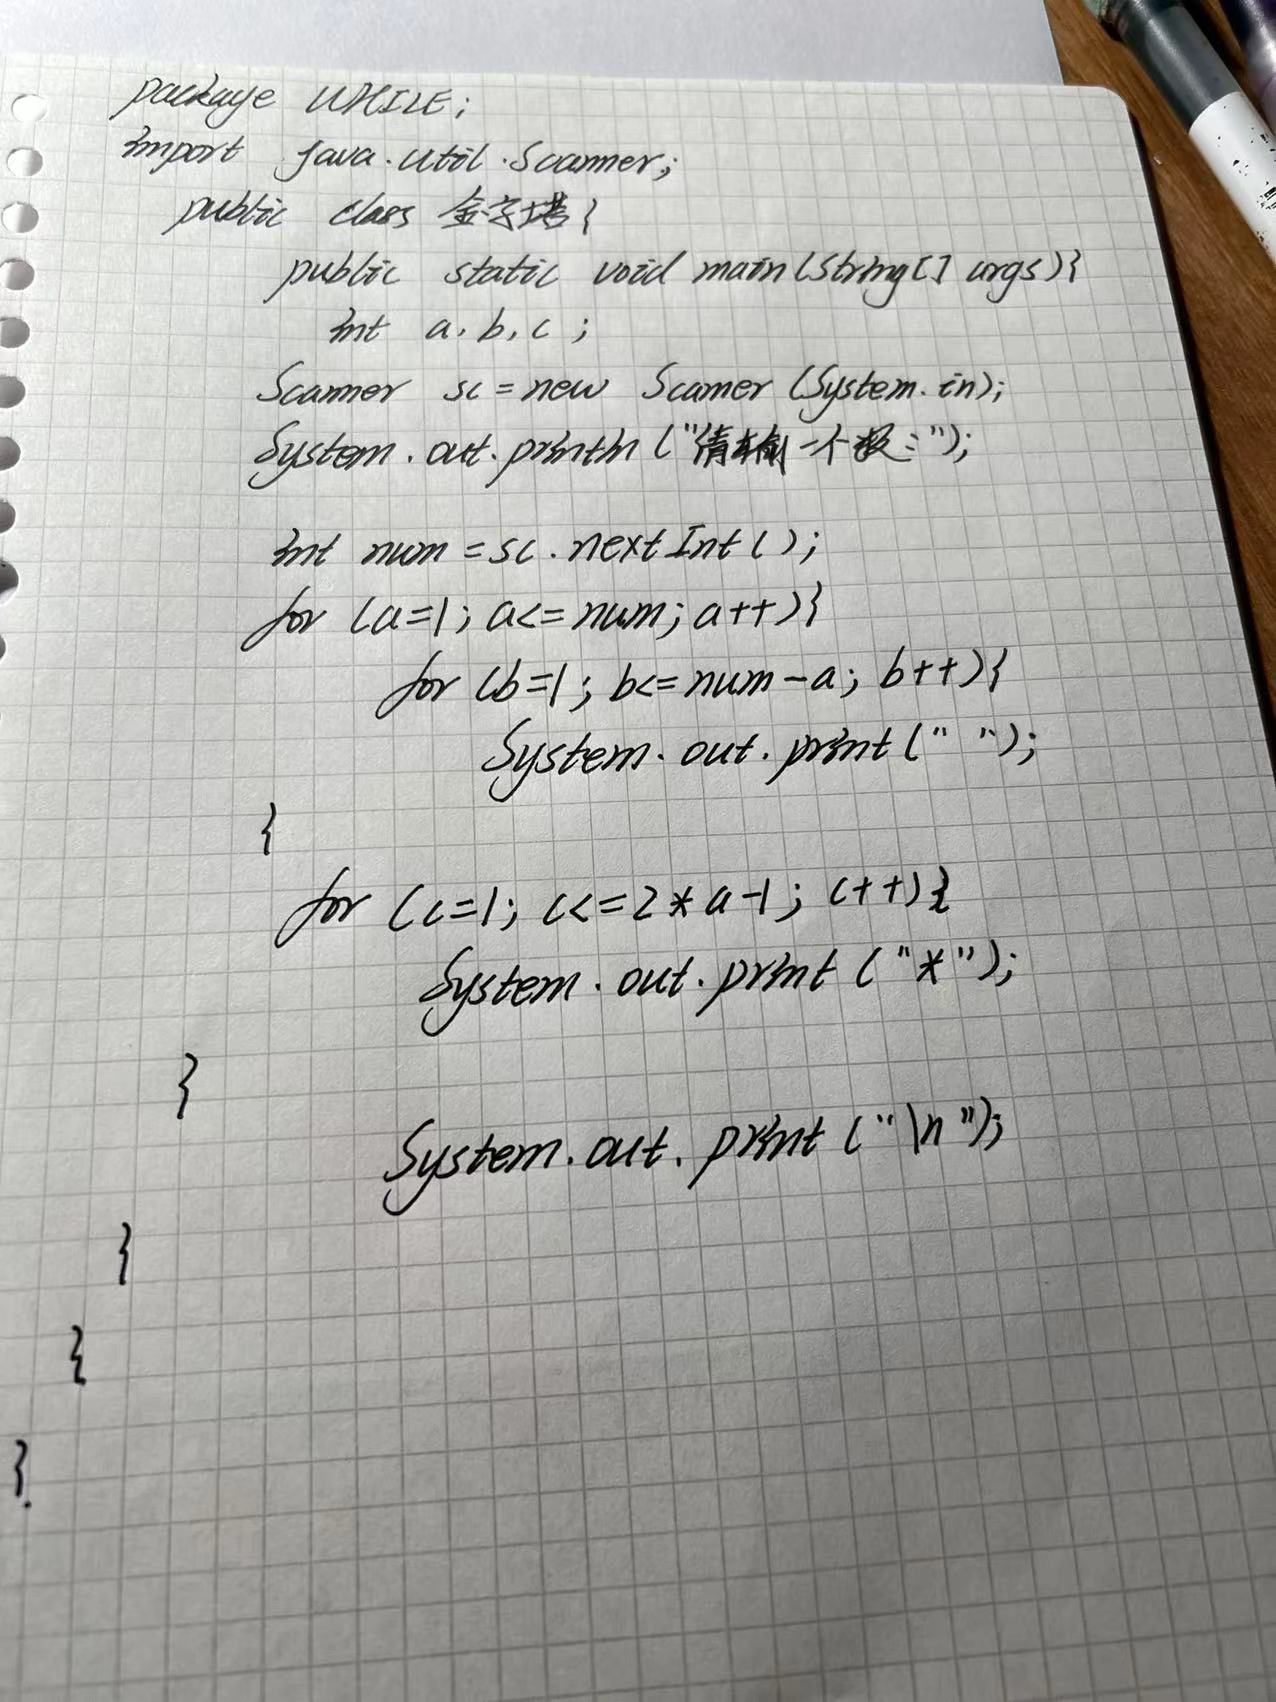 package WHILE;
import java.util.Scanner;
public class 金字塔{
public static void main(String[] args){
int a,b,c;
Scanner sc=new Scanner(System.in);
System.out.println("请输一个数:");
int num=sc.nextInt();
for(a=1;a<=num;a++){
for(b=1;b<=num-a;b++){
System.out.print(" ");
}
for(c=1;c<=2*a-1;c++){
System.out.print("*");
}
System.out.print("\n");
}
}
}